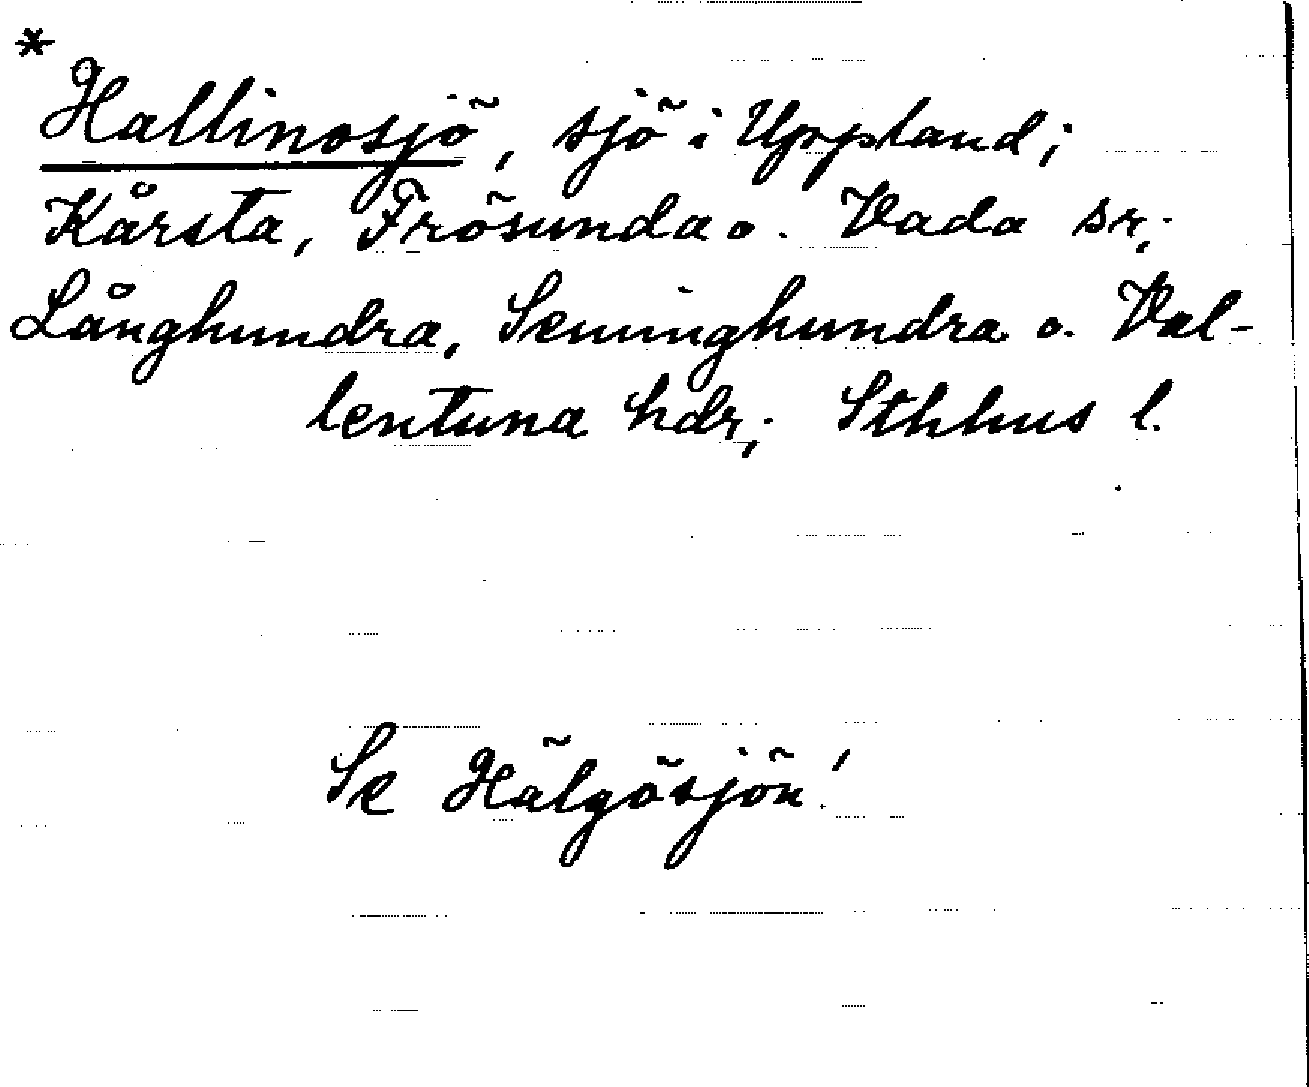 *
Hallinosjö, sjö i Uppland;
Kårsta, Frösunda o. Vada sr;
Långhundra, Seminghundra o. Val-
lentuna hdr; Sthlms l.
Se Hälgösjön!